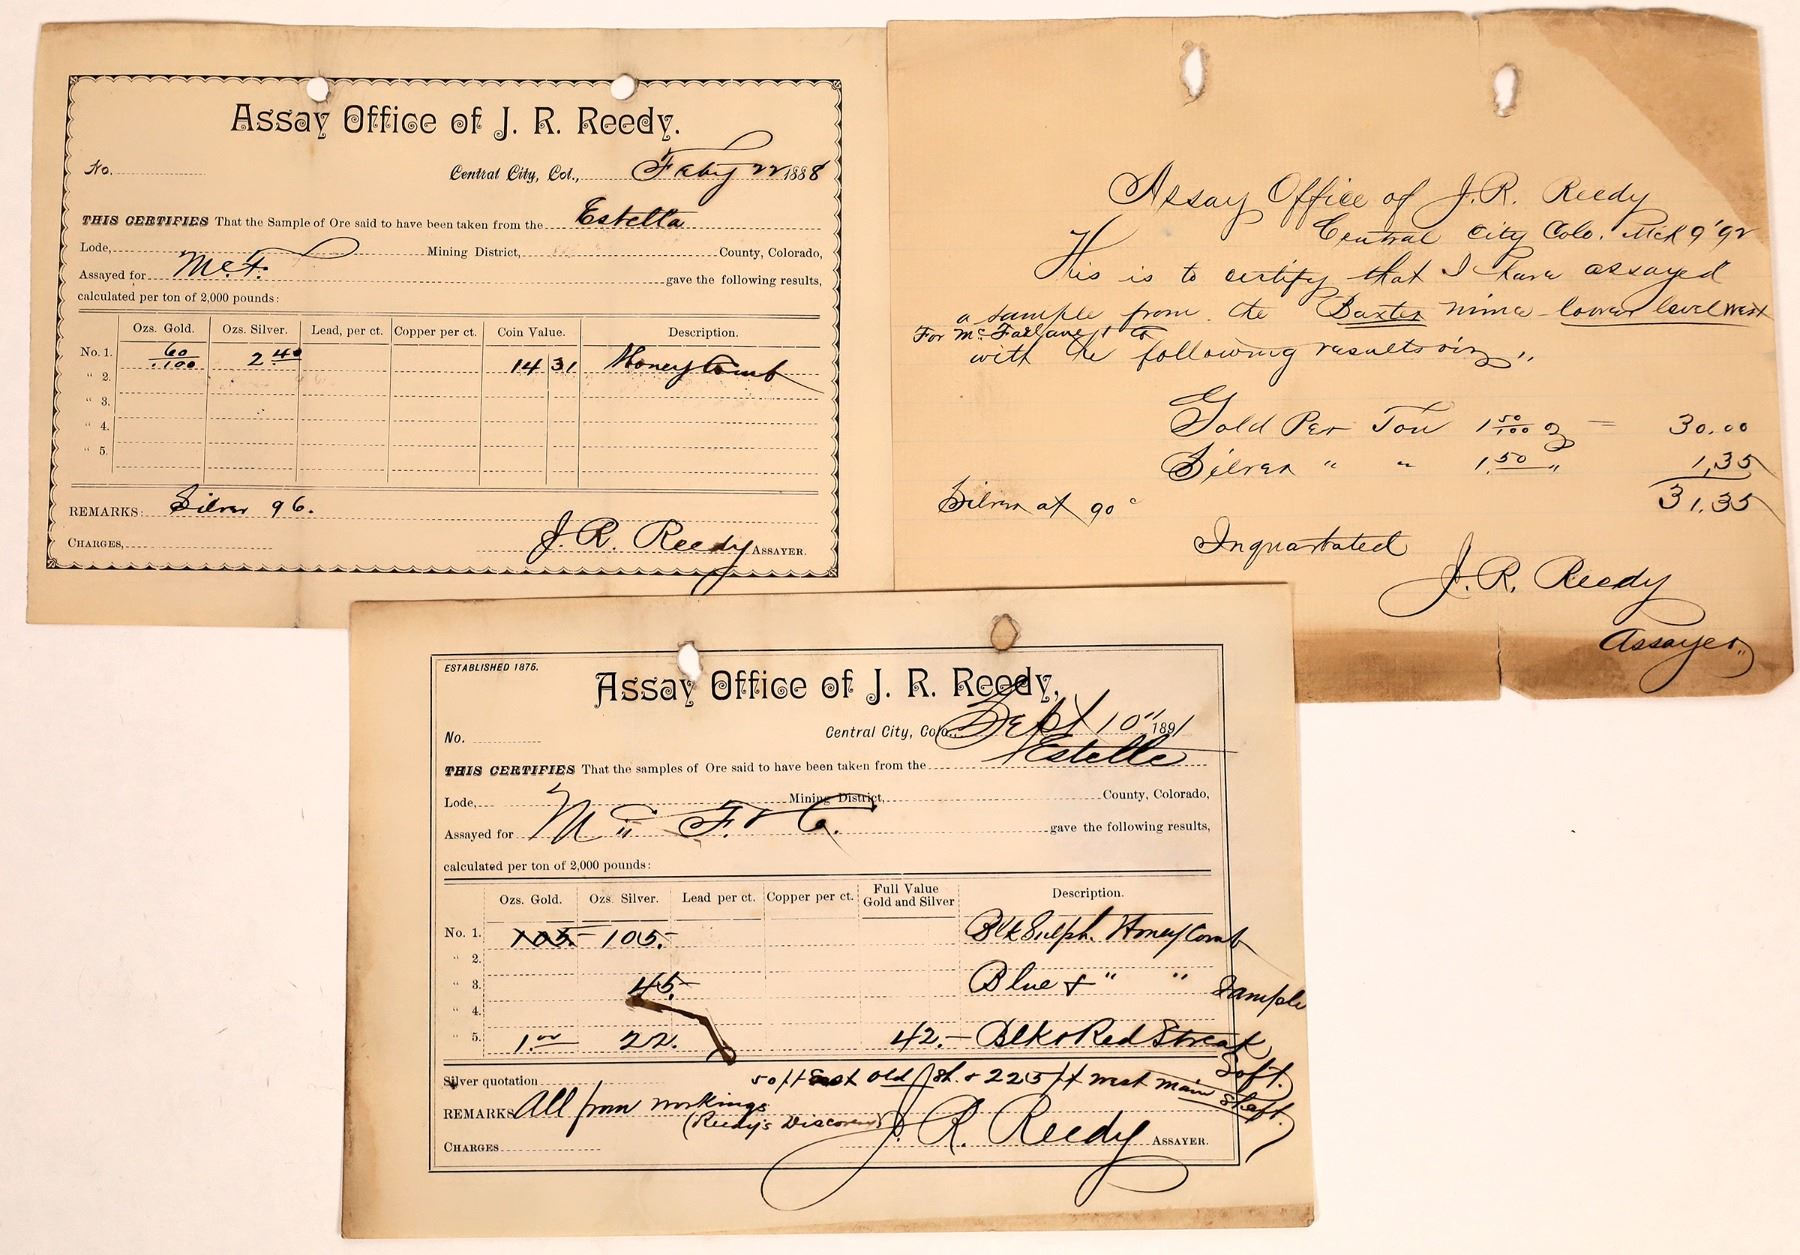 Assay Office of J. R. Reedy.
No. Central City, Col., Feby 22 1888
THIS CERTIFIES That the Sample of Ore said to have been taken from the Estella
Lode, Mining District, County, Colorado,
Assayed for McF. gave the following results,
calculated per ton of 2,000 pounds:
Ozs. Gold. Ozs. Silver. Lead, per ct. Copper per ct. Coin Value. Description.
No. 1. 60/100 2 40 14 31 Honey Comb
" 2.
" 3.
" 4.
" 5.
REMARKS: Silver 96.
CHARGES, J. R. Reedy ASSAYER.
Assay Office of J. R. Reedy
Central City Colo. Mch 9 '92
This is to certify that I have assayed
a sample from the Baxter mine - lower level west
For McFarlane & Co
with the following results viz "
Gold Per Ton 1 50/100 oz = 30.00
Silver " " 1.50 " 1,35
31.35
Silver at 90c
Inquartated
J. R. Reedy
Assayer
ESTABLISHED 1875.
Assay Office of J. R. Reedy,
No. Central City, Colo., Sept 10" 1891
THIS CERTIFIES That the samples of Ore said to have been taken from the Estelle
Lode, Mining District, County, Colorado,
Assayed for Mc F. & Co. gave the following results,
calculated per ton of 2,000 pounds:
Ozs. Gold. Ozs. Silver. Lead per ct. Copper per ct. Full Value Gold and Silver Description.
No. 1. 105.- 105.- Blk Sulph. Honey Comb
" 2.
" 3. 45.- Blue & " " Sample
" 4.
" 5. 1.00 22. 42.- Blk & Red Streak
Soft.
Silver quotation 50 ft East old sh. & 225 ft west main shaft.
REMARKS All from workings
(Reedy's Discovery)
CHARGES J. R. Reedy ASSAYER.